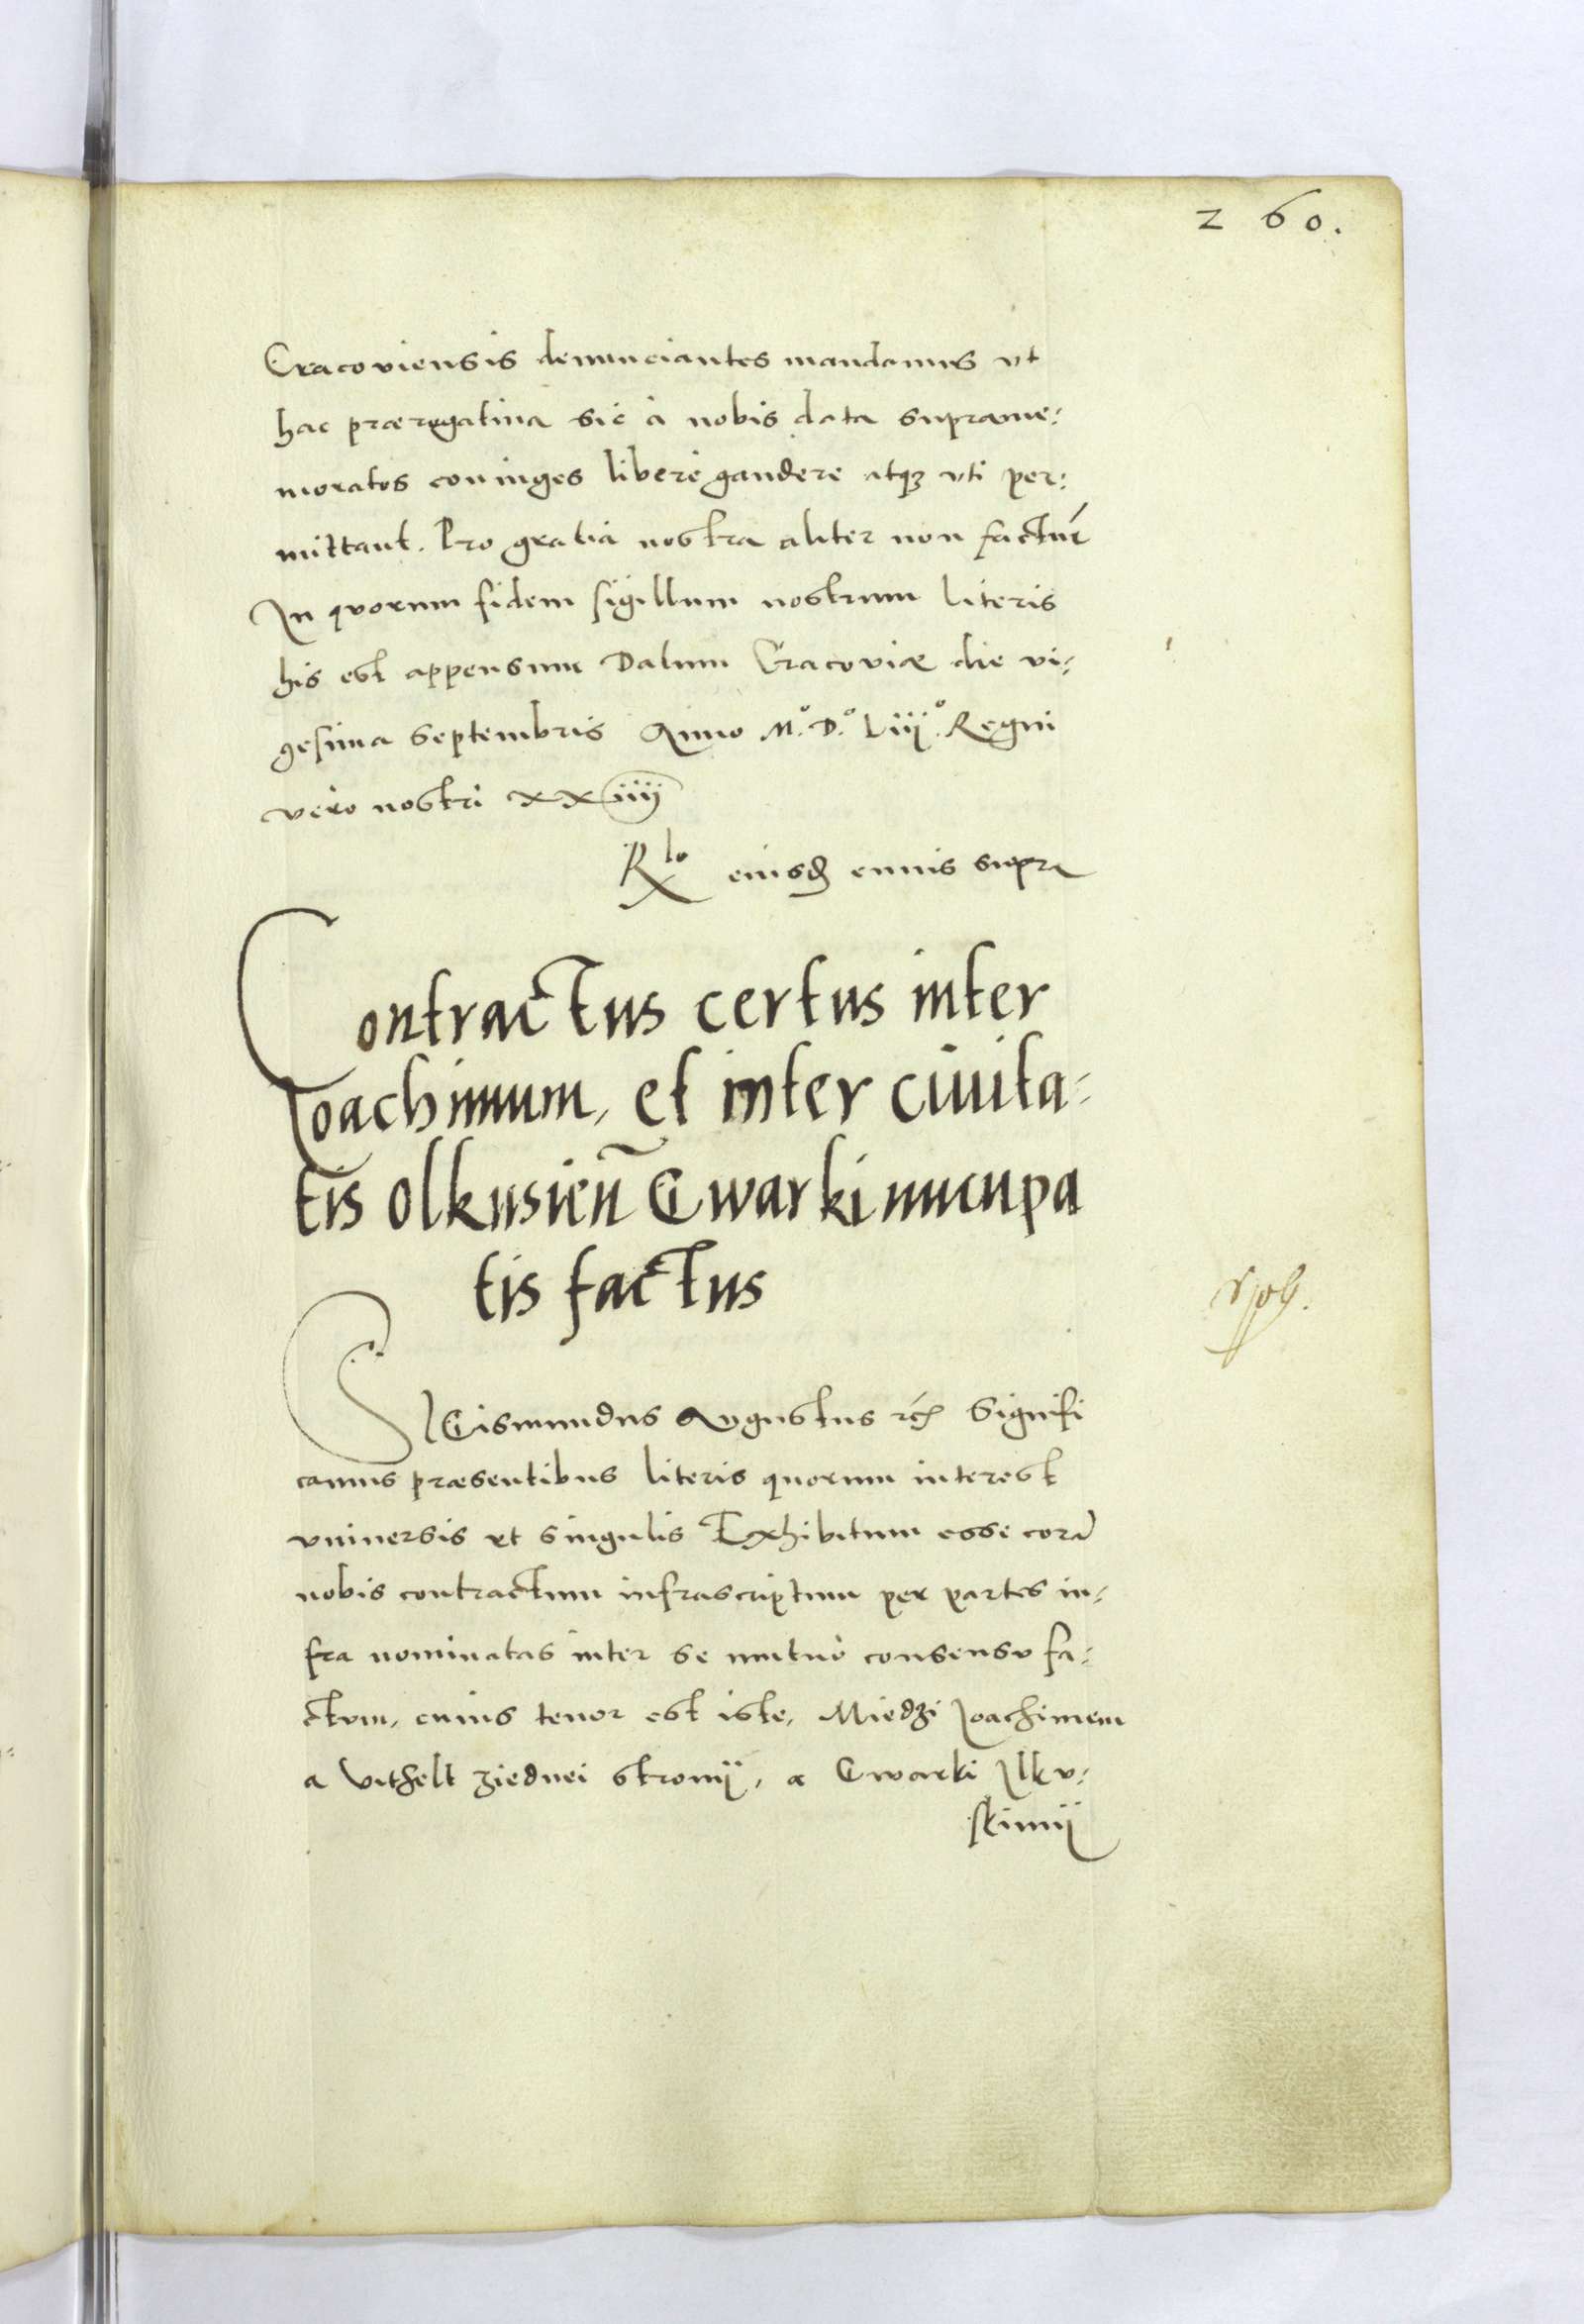 260.
Cracoviensis denunciantes mandamus vt
hac prærogatiua sic à nobis data suprame-
moratos coniuges liberè gaudere atqꝫ vti per-
mittant. Pro gratia nostra aliter non factur̃
In quorum fidem sigillum nostrum literis
his est appensum Datum Cracoviæ die vi-
gesima Septembris Anno M.º D.º Liij.º Regni
vero nostri xxiiij
Rlo eiusd cuius supra
Contractus certus inter
Ioachimum, et inter ciuita-
tis Olkusień Gwarki nucupa
tis factus
SIGismundus Augustus rc̃ Signifi
camus præsentibus literis quorum interest
vniuersis et singulis Exhibitum esse corã
nobis contractum infrascriptum per partes in-
fra nominatas inter se mutuo consensu fa-
ctum, cuius tenor est iste, Miedzi Ioachimem
a Vithelt ziednei stronÿ, a Gwarki Ilku-
skimÿ